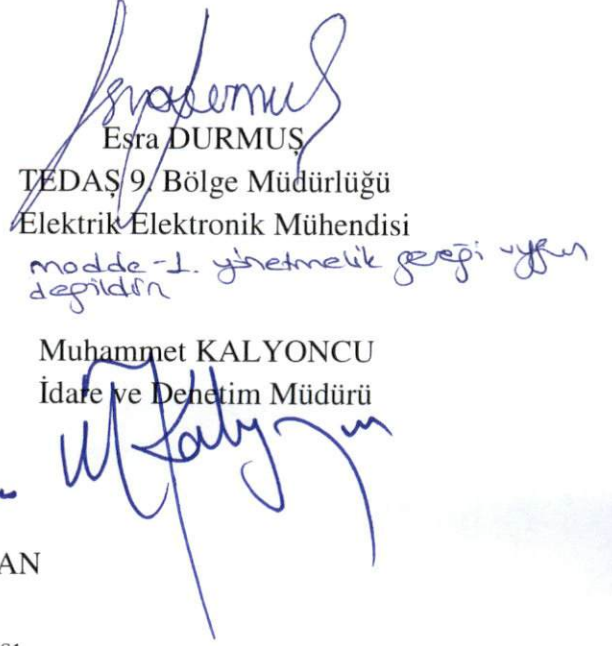 Esra DURMUŞ
TEDAŞ 9. Bölge Müdürlüğü
Elektrik Elektronik Mühendisi
madde-1. yönetmelik gereği uygun
değildir
Muhammet KALYONCU
İdare ve Denetim Müdürü
M Kalyoncu
AN